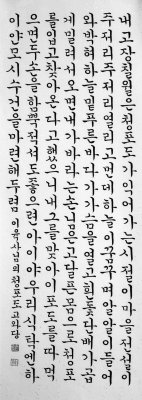 내고장칠월은청포도가익어가는시절이마을전설이
주저리주저리열리고먼데하늘이꿈꾸며알알이들어
와박혀하늘밑푸른바다가가슴을열고흰돛단배가곱
게밀려서오면내가바라는손님은고달픈몸으로청포
를입고찾아온다고했으니내그를맞아이포도를따먹
으면두손을함뿍적셔도좋으련아이야우리식탁엔하
이얀모시수건을마련해두렴 이육사님의청포도고와당